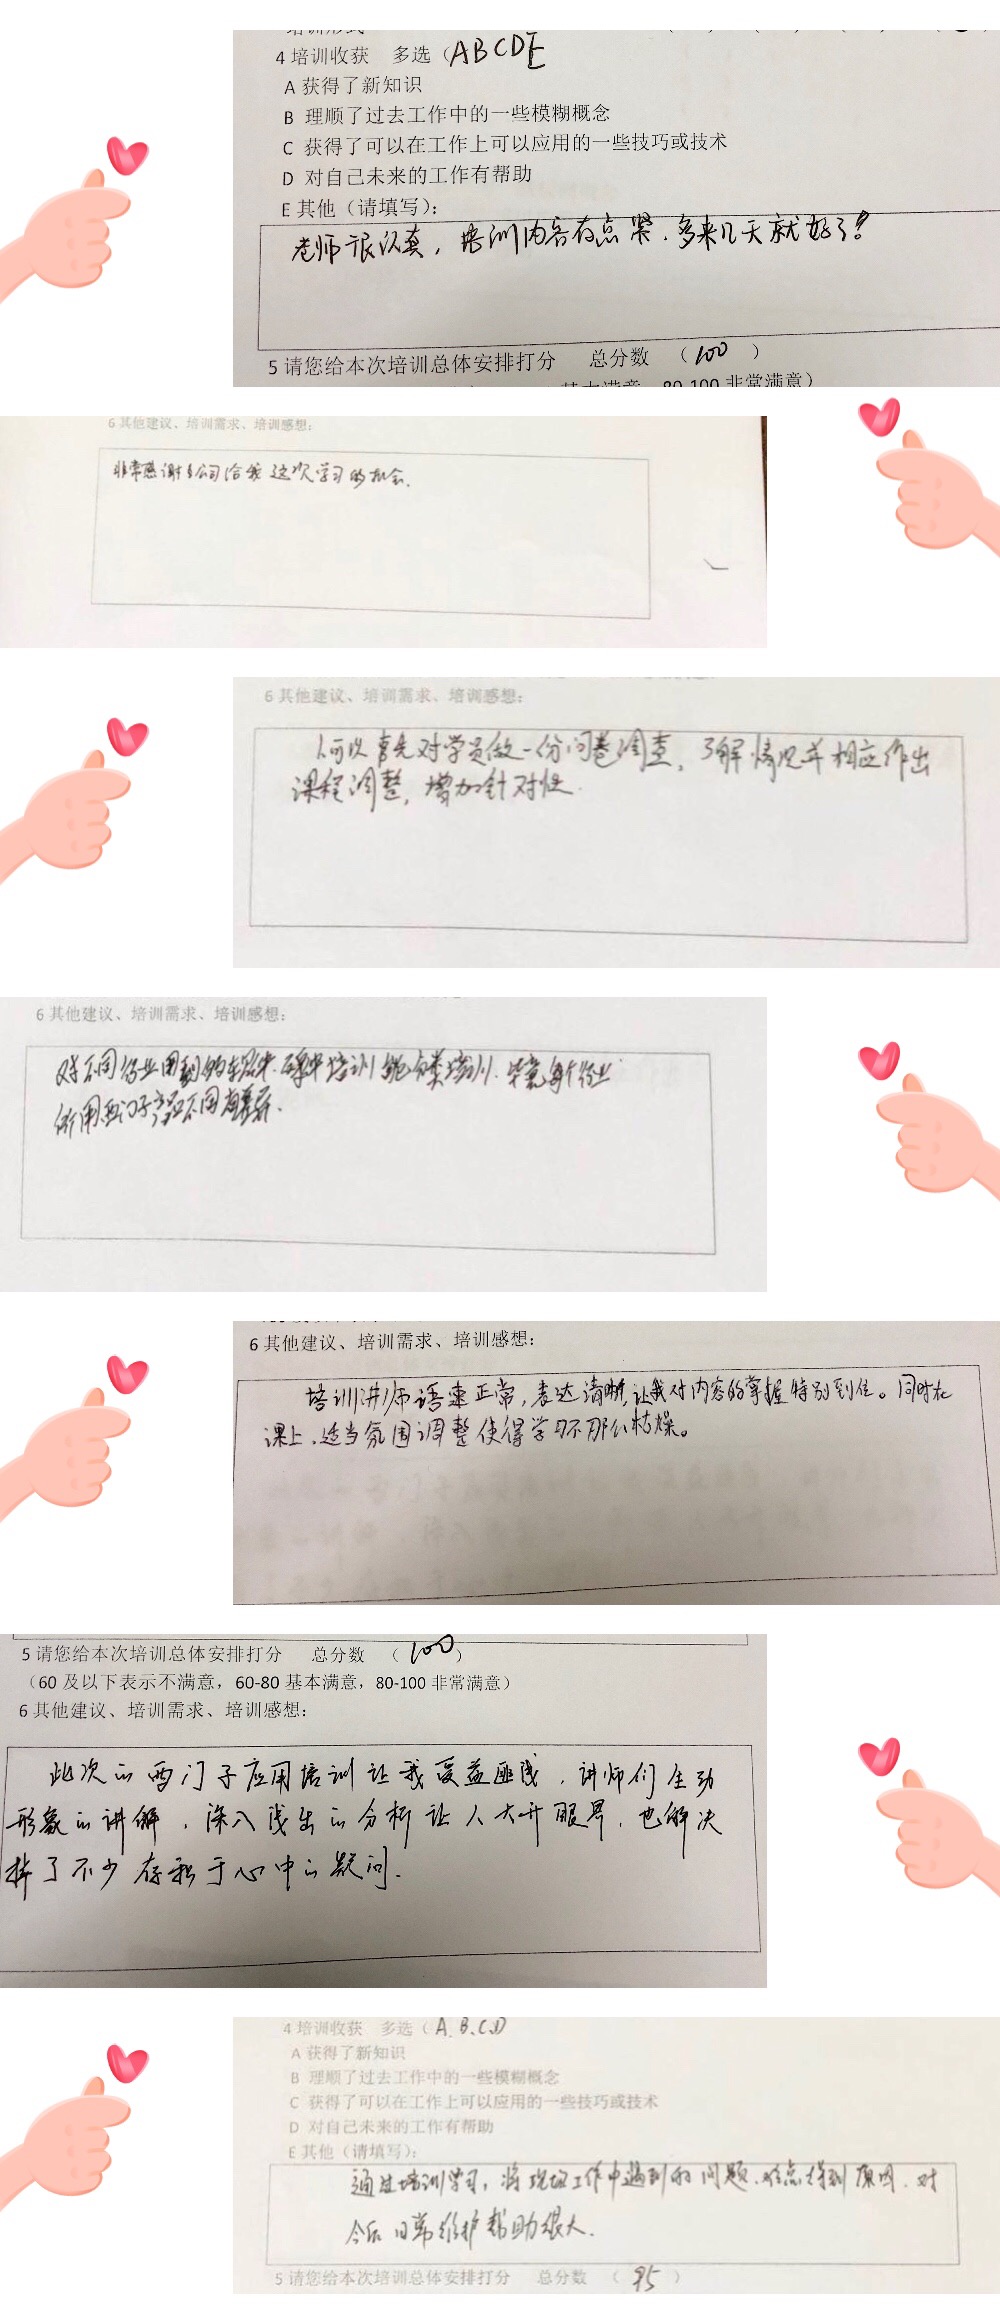 4 培训收获 多选（ABCDE
A 获得了新知识
B 理顺了过去工作中的一些模糊概念
C 获得了可以在工作上可以应用的一些技巧或技术
D 对自己未来的工作有帮助
E 其他（请填写）：
老师很认真，培训内容有点紧，多来几天就好了！
5 请您给本次培训总体安排打分 总分数 （100 ）
基本满意，80-100 非常满意）
6 其他建议、培训需求、培训感想：
非常感谢公司给我这次学习的机会.
6 其他建议、培训需求、培训感想：
可以首先对学员做一份问卷调查，了解情况并相应作出
课程调整，增加针对性.
6 其他建议、培训需求、培训感想：
对不同行业用到的软件.硬件培训能分类培训.毕竟每个行业
所用西门子产品不同有差异.
6 其他建议、培训需求、培训感想：
培训讲师语速正常，表达清晰，让我对内容的掌握特别到位。同时在
课上，适当氛围调整使得学习不那么枯燥。
5 请您给本次培训总体安排打分 总分数 （100）
（60 及以下表示不满意，60-80 基本满意，80-100 非常满意）
6 其他建议、培训需求、培训感想：
此次的西门子应用培训让我受益匪浅，讲师们生动
形象的讲解，深入浅出的分析让人大开眼界，也解决
掉了不少存积于心中的疑问.
4 培训收获 多选（A、B、C、D
A 获得了新知识
B 理顺了过去工作中的一些模糊概念
C 获得了可以在工作上可以应用的一些技巧或技术
D 对自己未来的工作有帮助
E 其他（请填写）：
通过培训学习，将现场工作中遇到的问题、难点得到原因，对
今后日常维护帮助很大.
5 请您给本次培训总体安排打分 总分数 （ 95 ）